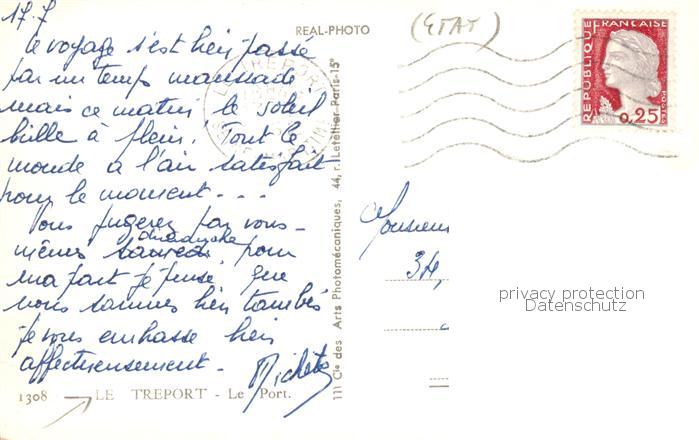 17.7
Le voyage s'est bien passé
par un temps maussade
mais ce matin le soleil
brille à plein! Tout le
monde a l'air satisfait
pour le moment...
Vous jugerez par vous-
mêmes samedi dimanche pour
ma part je pense que
nous sommes bien tombés
je vous embrasse bien
affectueusement.
1308 LE TREPORT - Le Port.
REAL-PHOTO
111 Cie des Arts Photomécaniques, 44, r. Letellier Paris-15e
(ETAT)
LE TREPORT
REPUBLIQUE FRANÇAISE
0,25
POSTES
Monsieur
34,
privacy protection
Datenschutz